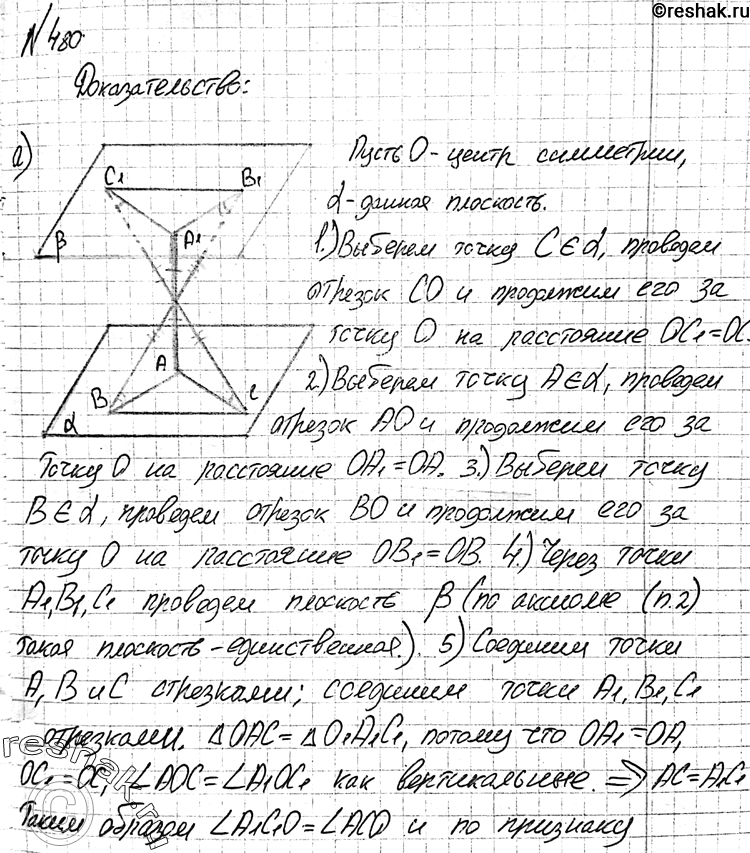 ©reshak.ru
№480
Доказательство:
а)
C1 B1
A1
β
A
B C
α
Пусть O - центр симметрии,
α - данная плоскость.
1.) Выберем точку C∈α, проведем
отрезок CO и продолжим его за
точку O на расстояние OC1=OC.
2.) Выберем точку A∈α, проведем
отрезок AO и продолжим его за
точку O на расстояние OA1=OA. 3.) Выберем точку
B∈α, проведем отрезок BO и продолжим его за
точку O на расстояние OB1=OB. 4.) Через точки
A1,B1,C1 проведем плоскость β (по аксиоме (п.2)
такая плоскость - единственная.). 5) Соединим точки
A, B и C отрезками; соединим точки A1, B1, C1
отрезками. ΔOAC = ΔO1A1C1, потому что OA1=OA,
OC1=OC, ∠AOC=∠A1OC1 как вертикальные. ⇒ AC=A1C1
Таким образом ∠A1C1O=∠ACO и по признаку
©reshak.ru